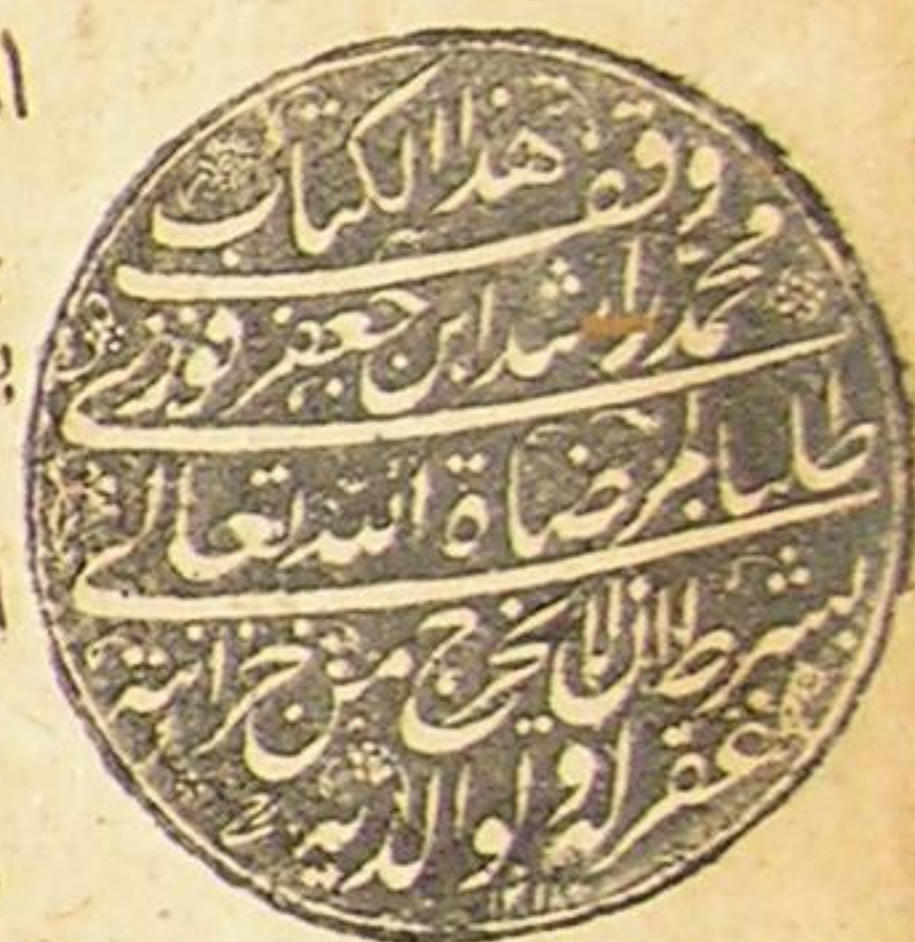 وقف هذا الكتاب
محمد راشد ابن جعفر فوزى
طالبا لمرضاة الله تعالى
بشرط ان لا يخرج من خزانته
غفر له ولوالديه